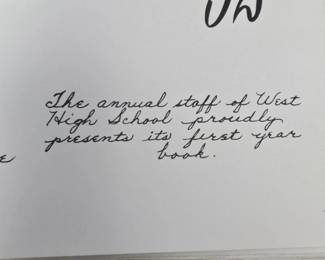 The annual staff of West
High School proudly
presents its first year
book.